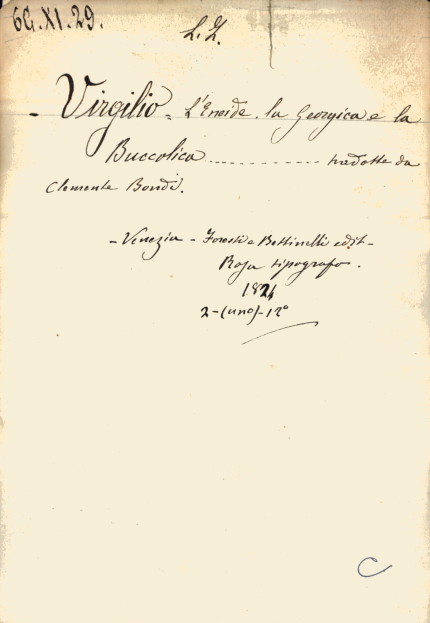 6G.XI.29.
L.Z.
- Virgilio = L'Eneide, la Georgica e la
Buccolica ............ tradotte da
Clemente Bondi.
- Venezia - Foresti e Bettinelli edit -
Rosa tipografo.
1824
2-(uno)-12°
C